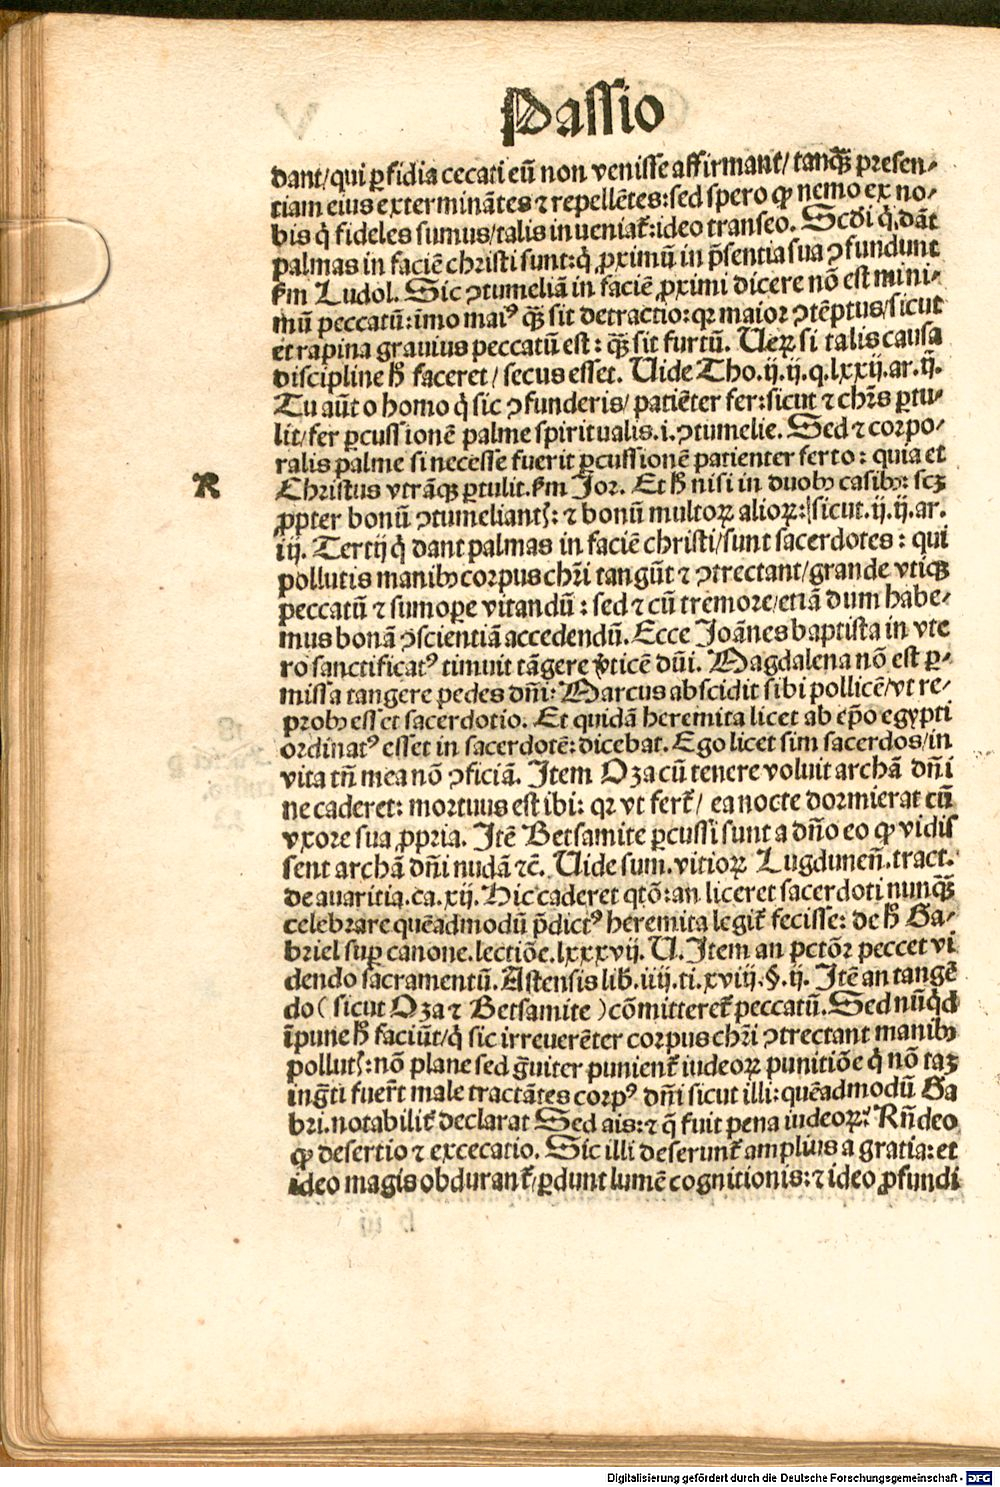 Passio
dant/qui ꝑfidia cecati eū non venisse affirmant/tanqȝ̄ presen-
tiam eius exterminātes ⁊ repellētes:sed spero ꝙ nemo ex no-
bis q̇ fideles sumus/talis inueniat̄:ideo transeo. Scd̄i q̇ dāt
palmas in faciē christi sunt:q̇ ꝓximū in p̄sentia sua ꝯfundunt
ẜm Ludol. Sic ꝯtumeliā in faciē ꝓximi dicere nō est mini-
mū peccatū:īmo maiꝰ qȝ̄ sit detractio:qꝛ maior ꝯtēptus/sicut
et rapina grauius peccatū est: qȝ̄ sit furtū. Ueꝝ si talis causa
discipline h̄ faceret/secus esset. Uide Tho.ij.ij.q.lxxij.ar.ij.
Tu aūt o homo q̇ sic ꝯfunderis/patiēter fer:sicut ⁊ chr̄s ꝑtu-
lit/fer ꝑcussionē palme spiritualis.i.ꝯtumelie. Sed ⁊ corpo-
ralis palme si necesse fuerit ꝑcussionē patienter ferto: quia et
R
Christus vtrāqȝ ꝑtulit.ẜm Jor. Et h̄ nisi in duobꝰ casibꝰ: scȝ
ꝓpter bonū ꝯtumeliantꝭ: ⁊ bonū multoꝝ alioꝝ:sicut.ij.ij.ar.
iij. Tertij q̇ dant palmas in faciē christi/sunt sacerdotes: qui
pollutis manibꝰ corpus chr̄i tangūt ⁊ ꝯtrectant/grande vtiqȝ
peccatū ⁊ sumoꝑe vitandū: sed ⁊ cū tremore/etiā dum habe-
mus bonā ꝯscientiā accedendū. Ecce Joānes baptista in vte
ro sanctificatꝰ timuit tāgere v̓ticē dn̄i. Magdalena nō est ꝑ-
missa tangere pedes dn̄i: Marcus abscidit sibi pollicē/vt re-
probꝰ esset sacerdotio. Et quidā heremita licet ab ep̄o egypti
ordinatꝰ esset in sacerdotē:dicebat. Ego licet sim sacerdos/in
vita tn̄ mea nō ꝯficiā. Item Oza cū tenere voluit archā dn̄i
ne caderet: mortuus est ibi: qꝛ vt fert̄/ ea nocte dormierat cū
vxore sua ꝓpria. Itē Betsamite ꝑcussi sunt a dn̄o eo ꝙ vidis
sent archā dn̄i nudā ⁊c̄. Uide sum.vitioꝝ Lugdunen̄.tract.
de auaritia.ca.xij. Hic caderet qtō:an liceret sacerdoti nunqȝ̄
celebrare quēadmodū p̄dictꝰ heremita legit̄ fecisse: de h̄ Ga-
briel suꝑ canone.lectiōe.lxxxvij. U. Item an pctōꝛ peccet vi
dendo sacramentū. Astensis lib.iiij.ti.xviij.§.ij. Itē an tangē
do( sicut Oza ⁊ Betsamite )cōmitteret̄ peccatū. Sed nūqd
īpune h̄ faciūt/q̇ sic irreuerēter corpus chr̄i ꝯtrectant manibꝰ
pollutꝭ:nō plane sed g̈uiter punient̄ iudeoꝝ punitiōe q̇ nō taȝ
ing̈ti fuer̄t male tractātes corpꝰ dn̄i sicut illi:quēadmodū Ga
bri.notabilit̄ declarat Sed ais:⁊ q̄ fuit pena iudeoꝝ: Rn̄deo
ꝙ desertio ⁊ excecatio. Sic illi deserunt̄ amplius a gratia:et
ideo magis obdurant̄/ꝑdunt lumē cognitionis:⁊ ideo ꝓfundi
Digitalisierung gefördert durch die Deutsche Forschungsgemeinschaft - DFG